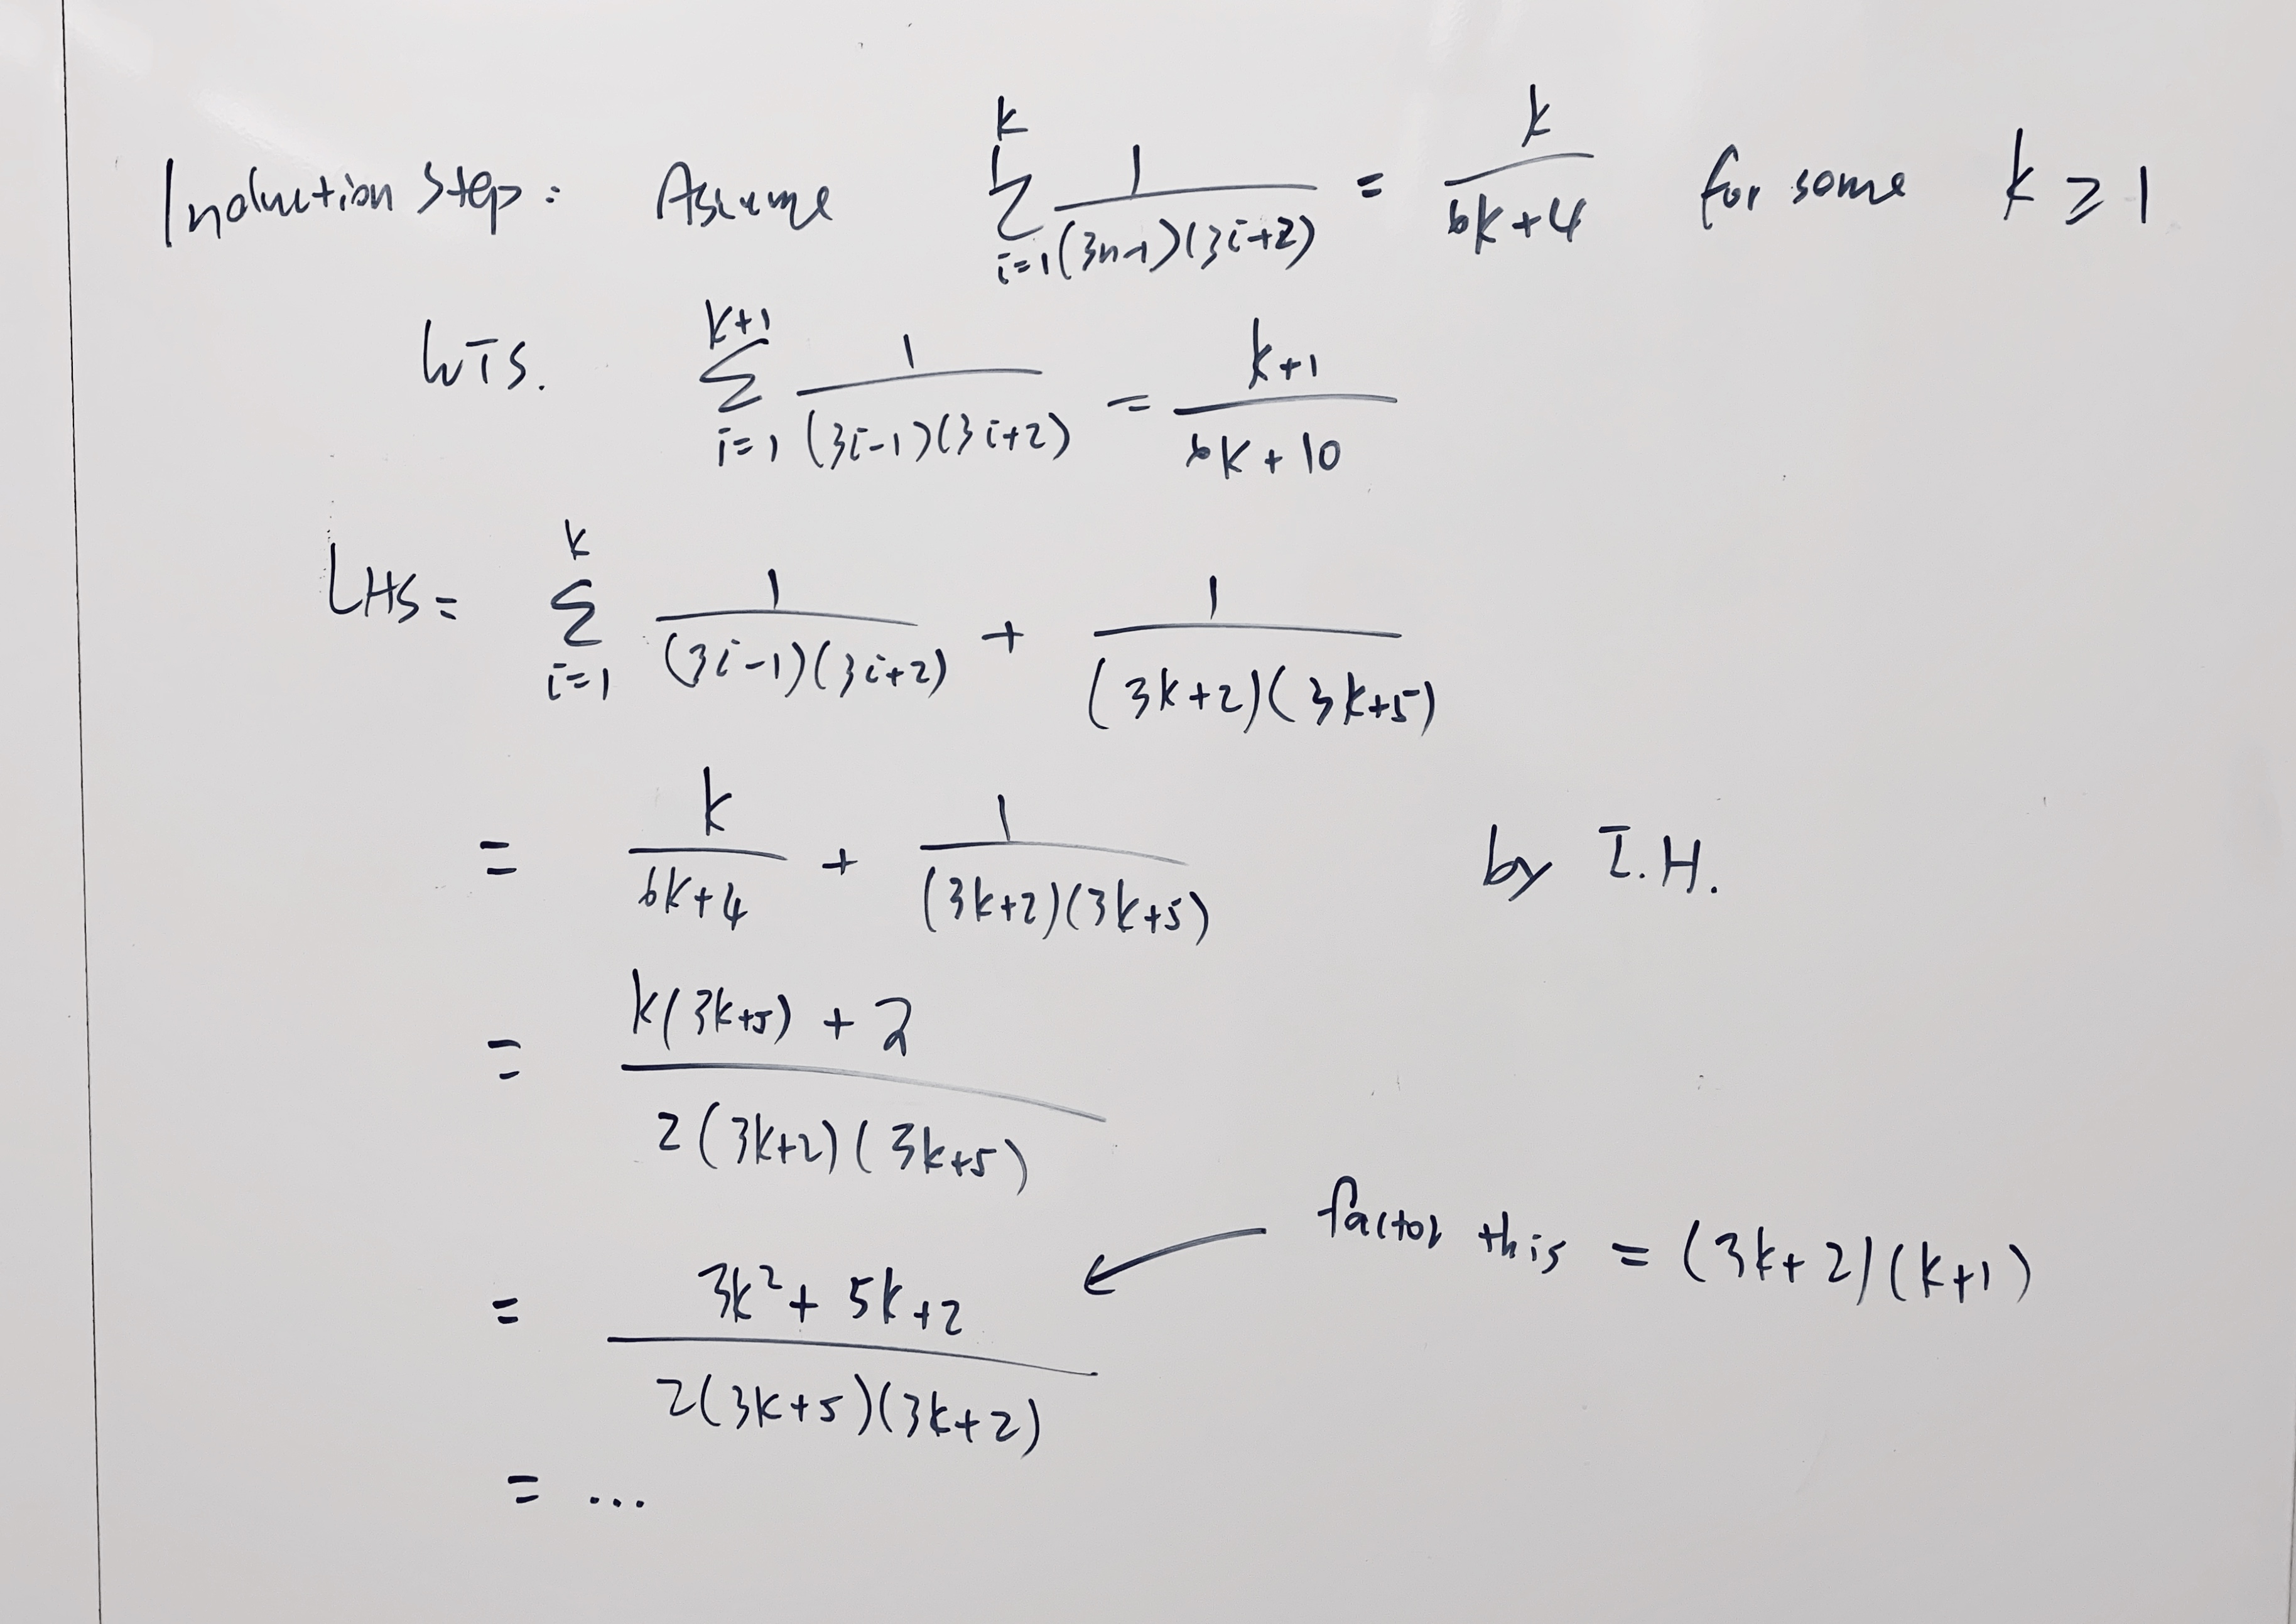 Induction Step: Assume \sum_{i=1}^{k} \frac{1}{(3n-1)(3i+2)} = \frac{k}{6k+4} for some k ≥ 1
WTS. \sum_{i=1}^{k+1} \frac{1}{(3i-1)(3i+2)} = \frac{k+1}{6k+10}
LHS = \sum_{i=1}^{k} \frac{1}{(3i-1)(3i+2)} + \frac{1}{(3k+2)(3k+5)}
= \frac{k}{6k+4} + \frac{1}{(3k+2)(3k+5)} by I.H.
= \frac{k(3k+5)+2}{2(3k+2)(3k+5)}
= \frac{3k^2+5k+2}{2(3k+5)(3k+2)} ← factor this = (3k+2)(k+1)
= ...